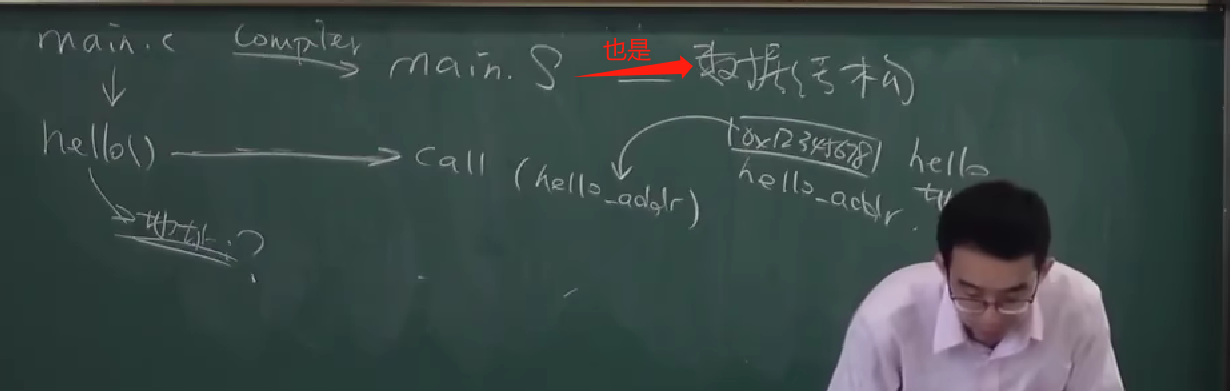 main.c compiler main.S 也是 数据结构
hello() call (hello_addr) 0x12345678 hello
地址? hello_addr